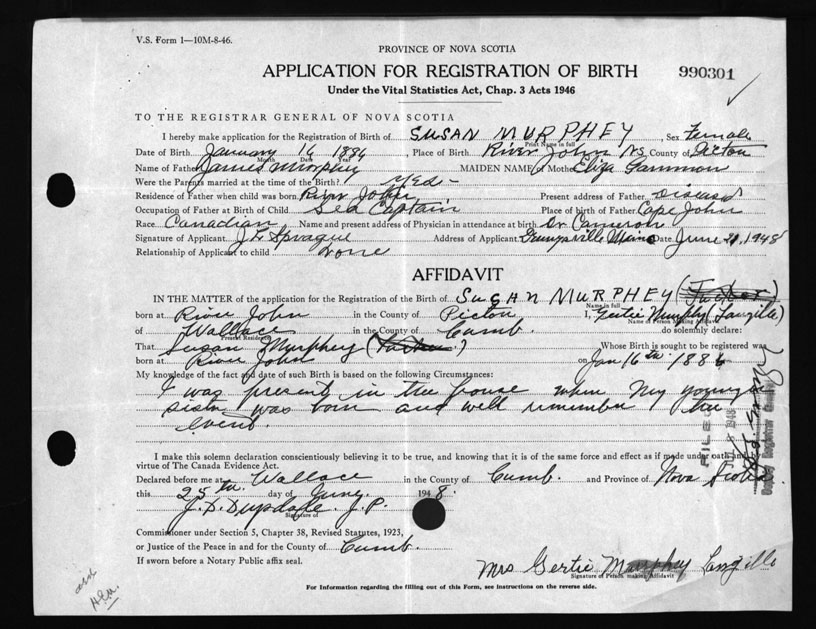 V.S. Form 1—10M-8-46.
PROVINCE OF NOVA SCOTIA
APPLICATION FOR REGISTRATION OF BIRTH
990301
Under the Vital Statistics Act, Chap. 3 Acts 1946
TO THE REGISTRAR GENERAL OF NOVA SCOTIA
I hereby make application for the Registration of Birth of SUSAN MURPHEY, Sex Female
Print Name in full
Date of Birth January 16 1886, Place of Birth River John NS County of Pictou
Month Date Year
Name of Father James Murphey MAIDEN NAME of Mother Eliza Gammon
Were the Parents married at the time of the Birth? Yes-
Residence of Father when child was born River John Present address of Father
Occupation of Father at Birth of Child Sea Captain Place of birth of Father Cape John
Race Canadian Name and present address of Physician in attendance at birth Dr Cameron
Signature of Applicant J L Sprague Address of Applicant Maine Date June 21, 1948
Relationship of Applicant to child None
AFFIDAVIT
IN THE MATTER of the application for the Registration of the Birth of SUSAN MURPHEY (Tucker)
Name in full
born at River John in the County of Pictou I, Gertie Murphy (Langille)
Name of Person Making Affidavit
of Wallace in the County of Cumb. do solemnly declare:
Present Residence
That Susan Murphey Whose Birth is sought to be registered was
born at River John on Jan 16th 1886
My knowledge of the fact and date of such Birth is based on the following Circumstances:
I was present in the house when my younger
sister was born and well remember the
event.
I make this solemn declaration conscientiously believing it to be true, and knowing that it is of the same force and effect as if made under oath and by
virtue of The Canada Evidence Act.
Declared before me at Wallace in the County of Cumb. and Province of Nova Scotia
this 25th. day of June. 1948.
J. D. J. P.
Signature of
Commissioner under Section 5, Chapter 38, Revised Statutes, 1923,
or Justice of the Peace in and for the County of Cumb.
If sworn before a Notary Public affix seal.
Mrs Gertie Murphey Langille
Signature of Person making Affidavit
For Information regarding the filling out of this Form, see instructions on the reverse side.
FILED
1948